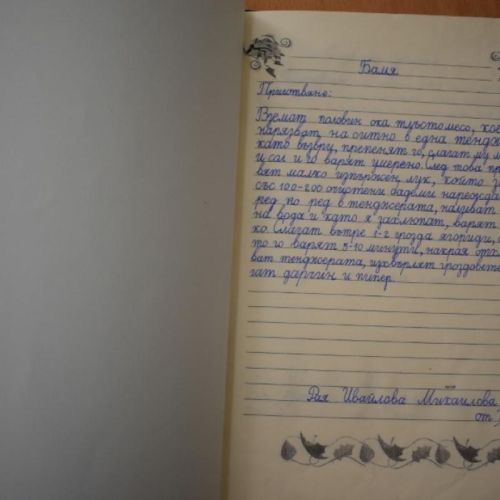 Бамя
Приготвяне:
Вземат половин ока тлъстомесо, кое
нарязват на ситно в една тендж
като възври, препенят го, слагат му м
и сол и го варят умерено. След това пр
вят малко изпържен лук, който
със 100-200 опърпени бадеми нарежда
ред по ред в тенджерата, наливат
на вода и като я захлюпат, варят
ко. Слагат вътре 1-2 грозда ягориди,
то го варят 5-10 минути, накрая отл
ват тенджерата, изхвърлят гроздовете
гат дарчин и пипер.
Рая Ивайлова Михайлова
от